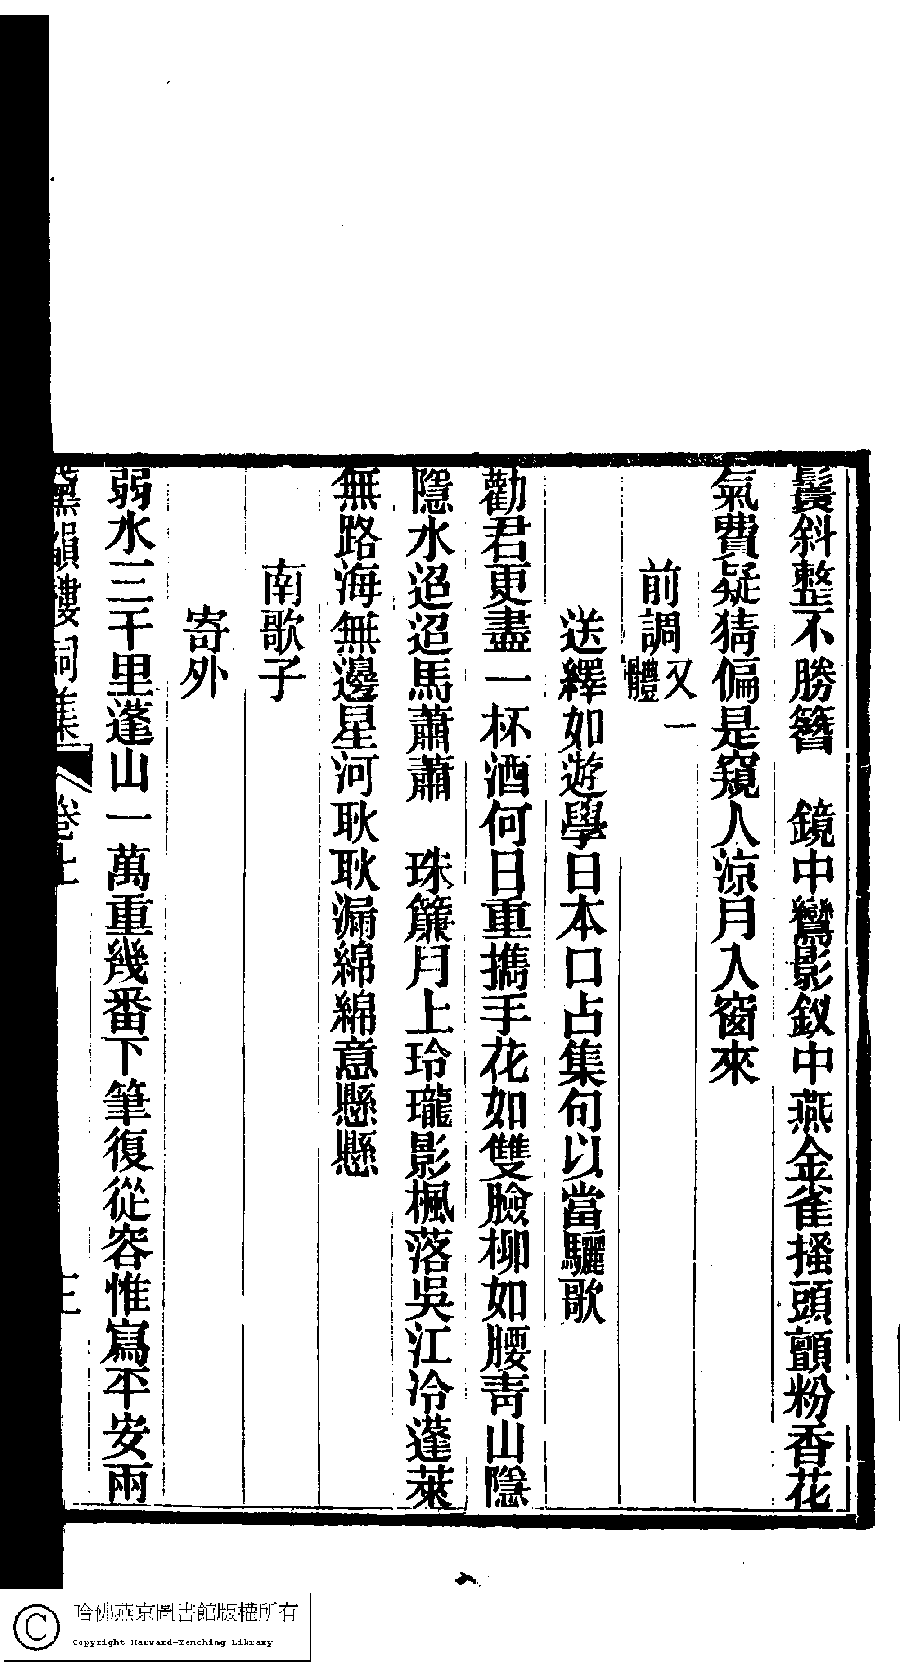 鬟斜整不勝簪　鏡中鸞影釵中燕金雀搔頭顫粉香花
氣費疑猜偏是窺人涼月入窗來
前調又一體
送繹如遊學日本口占集句以當驪歌
勸君更盡一杯酒何日重攜手花如雙臉柳如腰靑山隱
隱水迢迢馬蕭蕭　珠簾月上玲瓏影楓落吳江冷蓬萊
無路海無邊星河耿耿漏綿綿意懸懸
南歌子
寄外
弱水三千里蓬山一萬重幾番下筆復從容惟寫平安兩
黛韻樓詞集　卷上　三
哈佛燕京圖書館版權所有
Copyright Harvard-Yenching Library